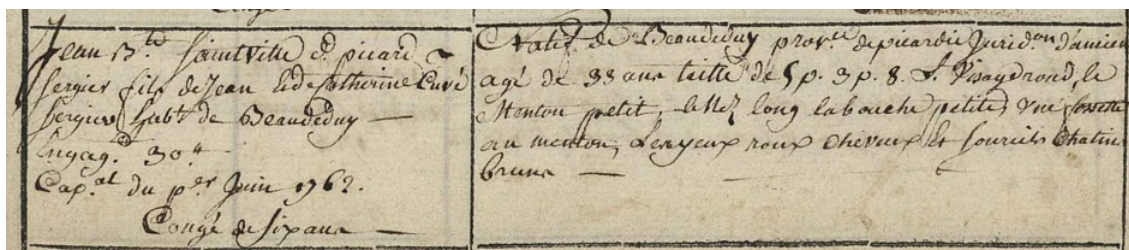 Jean B.te Saintville d.t picard
sergier fils de Jean Et de Catherine Curé
sergier hab.t de Beaudeduy —
Engag.t 30 #
Cap.al du p.er Juin 1762.
Congé de six ans —
Natif de Beaudeduy prov.ce de picardie Jurid.on d'amien
agé de 33 ans taille de 5 p. 3 p. 8. l. Visage rond, le
Menton petit, le Nez long la bouche petite, une fossette
au menton, Les yeux roux cheveux Et sourcils Chatin
bruns —